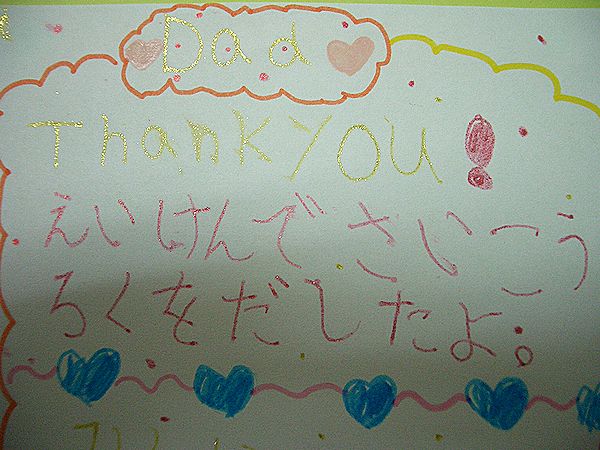 Dad
Thank YOU!
えいけんでさいこう
ろくをだしたよ。